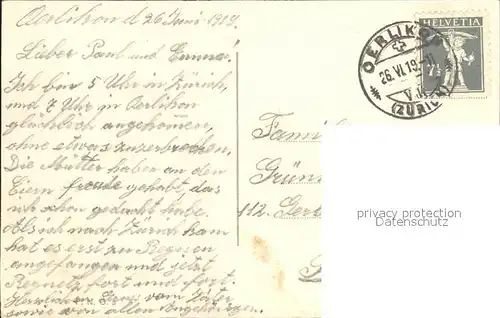 Oerlikon d 26 Juni 1919.
Lieber Paul und Emma!
Ich bin 5 Uhr in Zürich,
und 7 Uhr in Oerlikon
glücklich angekommen,
ohne etwas zuzerbrechen.
Die Mutter haben an den
Eiern freute gehabt, das
ich schon gedacht habe.
Als ich nach Zürich kam
hat es erst zu Regnen
angefangen und jetzt
Regnets fort und fort.
Herzlichen Gruss vom Vater
sowie von allen Angehörigen.
OERLIKON
26.VI.19
(ZÜRICH)
HELVETIA
7½
Famili
Grün
112.
privacy protection
Datenschutz